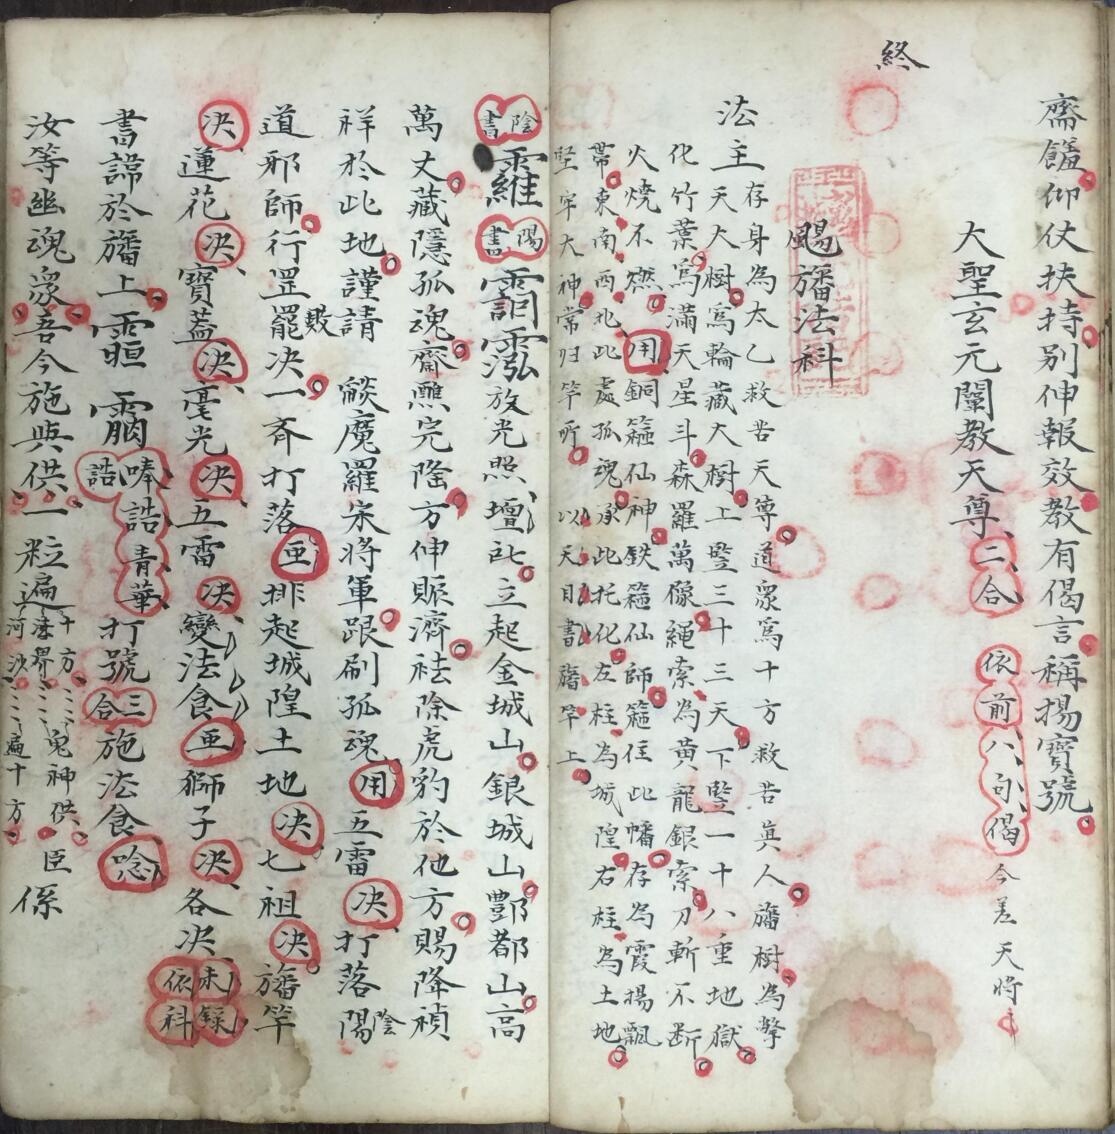 齋饈仰仗扶持别伸報效教有偈言稱揚寳號
大聖玄元闡教天尊二合 依前八句偈 今差天将
終
颺旛法科
法主 存身為太乙救苦天尊道眾為十方救苦真人旛樹為擎
天大樹為輪藏大樹上豎三十三天下豎一十八重地獄
化竹葉為滿天星斗森羅萬像繩索為黃龍銀索刀斬不断
火燒不燃用銅箍仙神鉄箍仙師箍住此幡存為霞揚飄
帶東南西北此處孤魂承此托化左柱為城隍右柱為土地
堅牢大神常归竿所以天目書旛竿上
陰書 陽書 放光照壇所立起金城山銀城山酆都山高
萬丈藏隱孤魂齋醮完隆方伸賑濟祛除虎豹於他方賜降禎
祥於此地謹請 燄魔羅宋將軍跟刷孤魂用五雷决打落陽陰
道邪師行罡罷毁决一斉打落亜排起城隍土地决七祖决旛竿
决蓮花决寶蓋决毫光决五雷决變法食亜獅子决各决未録依科
書諱於旛上 唪誥誥青華打號三合施法食唸
汝等幽魂眾吾今施與供一粒遍十方
河沙鬼神供臣係